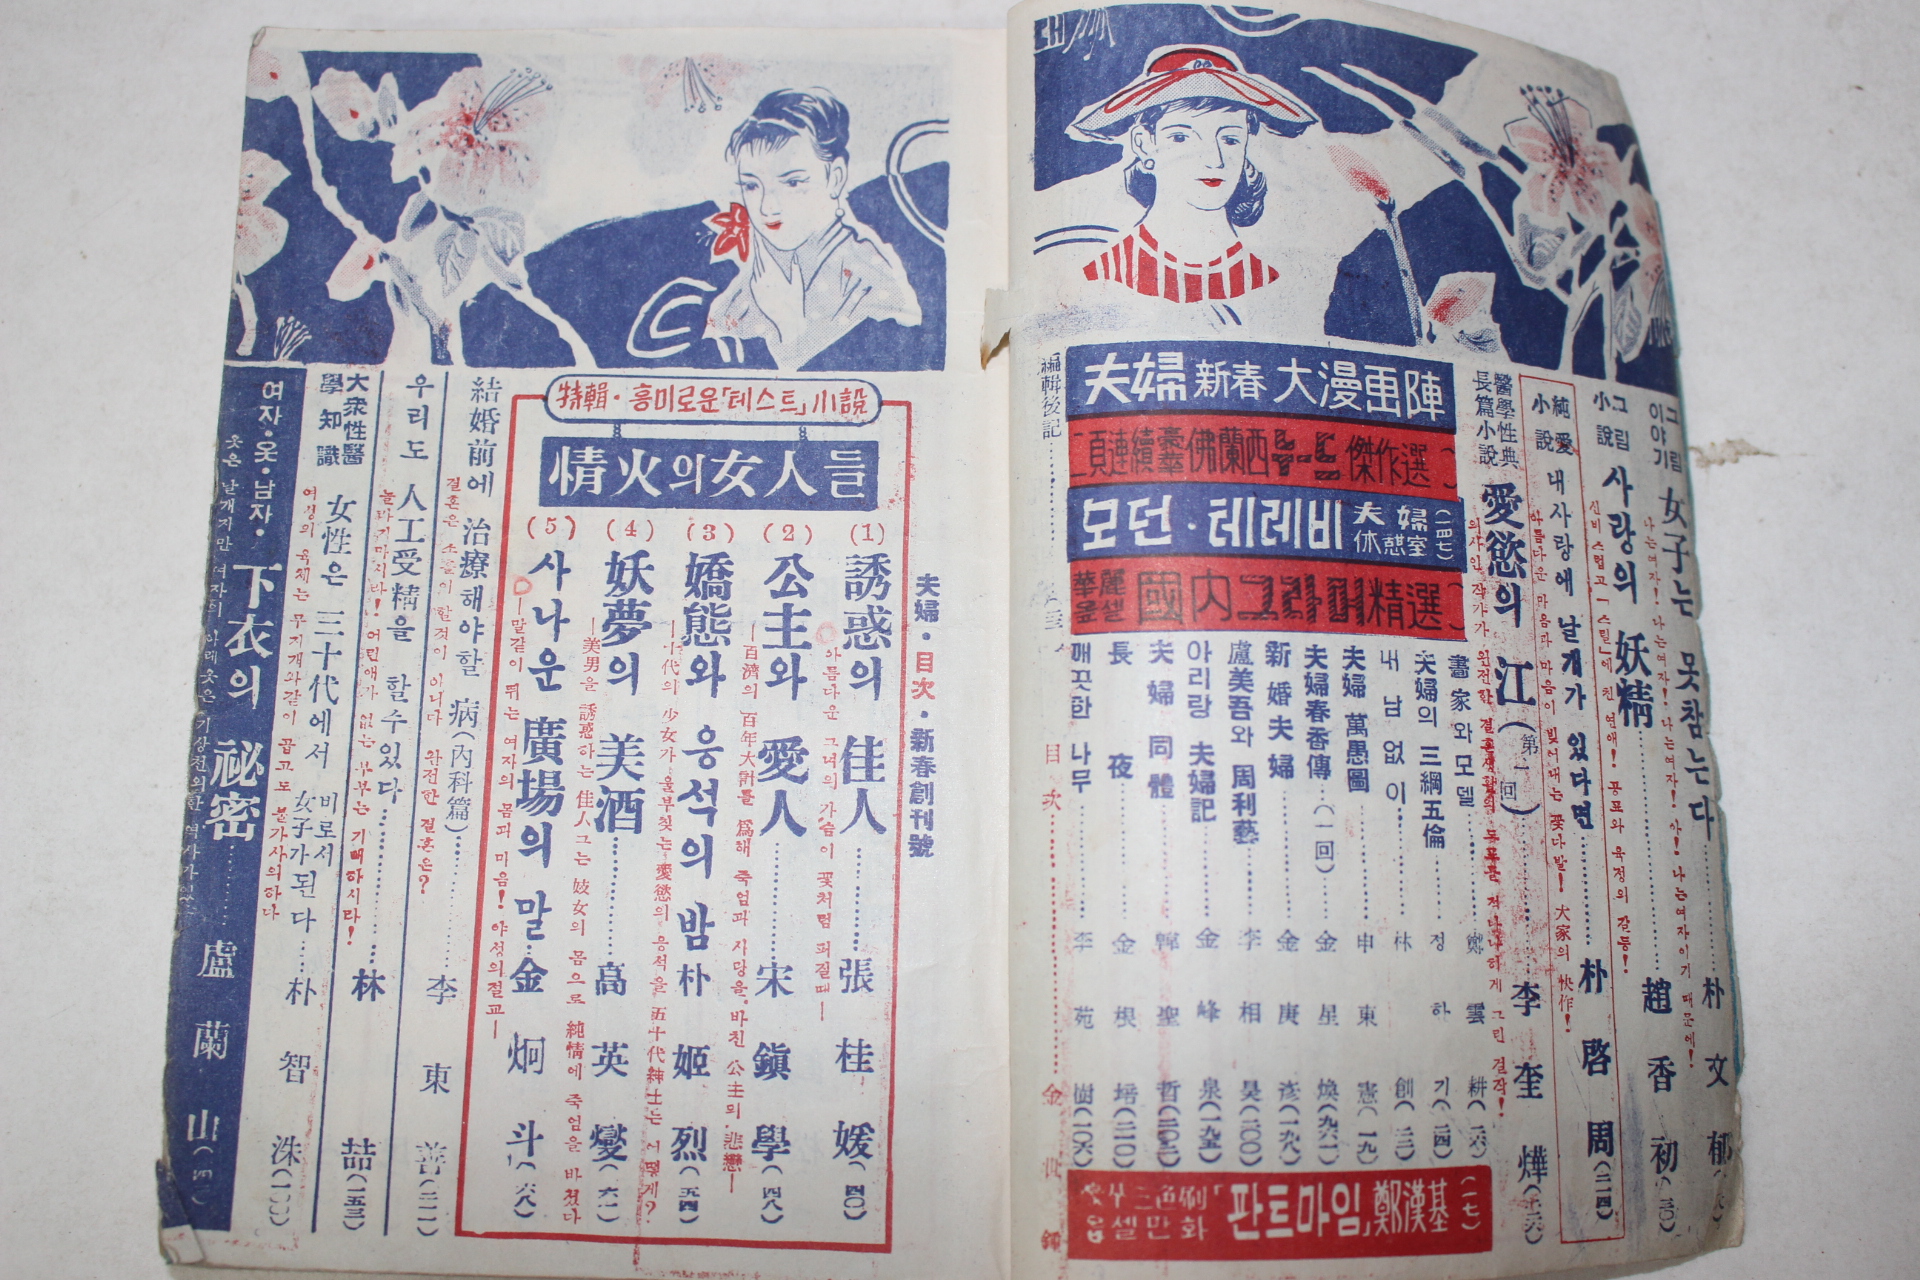 그림
이야기
女子는 못참는다
朴文郁
나는여자! 나는여자! 나는여자! 아! 나는여자이기 때문에!
그림
小說
사랑의 妖精
趙香初
신비스럽고 「스릴」에 친 연애! 공포와 욕정의 갈등!
純愛
小說
내사랑에 날개가 있다면
朴啓周(二一四)
아름다운 마음과 마음이 빚어내는 꽃다발! 大家의 快作!
醫學性典
長篇小說
愛慾의 江(第一回)
李奎燁
의사인 작가가 완전한 결혼생활의
그린 걸작!
夫婦新春大漫画陣
二頁連續豪華佛蘭西누드傑作選
모던·테레비 夫婦休憩室(一四七)
華麗 國內그라머精選
畵家와모델
鄭雲耕
夫婦의 三綱五倫
정하기
내 남 없 이
林創
夫婦 萬愚圖
申東憲
夫婦春香傳(一回)
金星煥
新婚夫婦
金庚彦
盧美吾와 周利藝
李相昊(二〇〇)
아리랑 夫婦記
金峰泉(一九五)
夫婦同體
韓聖哲(二〇三)
長夜
金根培(二一〇)
깨끗한 나무
李苑樹(一〇六)
三色刷「판트마임」鄭漢基(一七)
옵셀만화
編輯後記
目次
金世鍾
夫婦·目次·新春創刊號
特輯·흥미로운「테스트」小說
情火의女人들
(1) 誘惑의 佳人
張桂媛(四〇)
아름다운 그녀의 가슴이 꽃처럼 퍼질때—
(2) 公主와 愛人
宋鎭學(四八)
—百濟의 百年大計를 爲해 죽엄과 사랑을 바친 公主의 悲戀—
(3) 嬌態와 웅석의 밤
朴姬烈(五四)
—十代의 少女가 울부짖는 愛慾의 웅석을 五十代紳士는 어떻게?
(4) 妖夢의 美酒
高英燮(六一)
—美男을 誘惑하는 佳人 그는 妓女의 몸으로 純情에 죽엄을 바쳤다
(5) 사나운 廣場의 말
金炯斗(六八)
—말같이 뛰는 여자의 몸과 마음! 야성의절교—
結婚前에 治療해야할 病(內科篇)
李東善(二一一)
결혼은 소홀의 할것이 아니다 완전한 결혼은?
우리도 人工受精을 할수있다
林喆(一五三)
놀라지마시라! 어린애가 없는 부부는 기뻐하시라!
大衆性醫
學知識
女性은 三十代에서 비로서
女子가된다
朴智洙(一〇〇)
여성의 육체는 무지개와같이 곱고도 불가사의하다
여자·옷·남자·下衣의 祕密
盧蘭山
옷은 날개지만 여자의 아래옷은